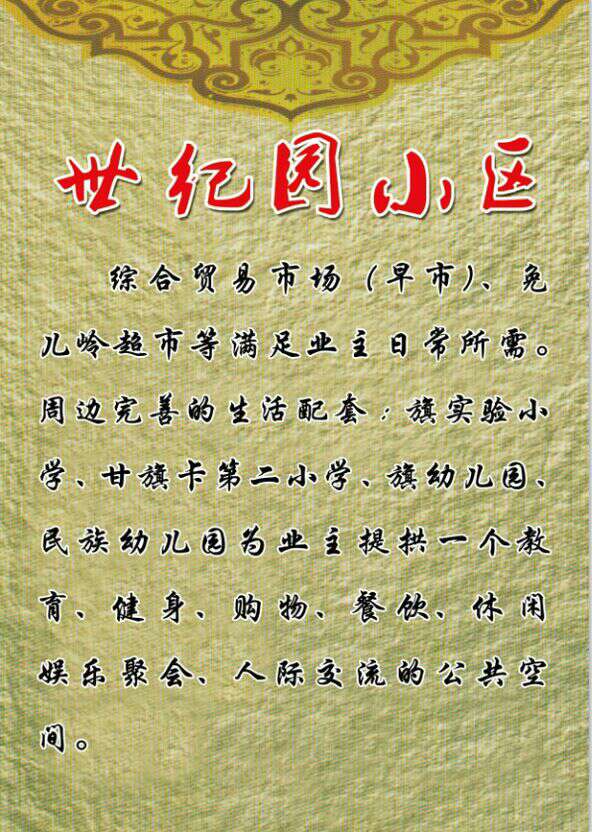 世纪园小区
综合贸易市场(早市)、兔
儿岭超市等满足业主日常所需。
周边完善的生活配套:旗实验小
学、甘旗卡第二小学、旗幼儿园、
民族幼儿园为业主提拱一个教
育、健身、购物、餐饮、休闲
娱乐聚会、人际交流的公共空
间。